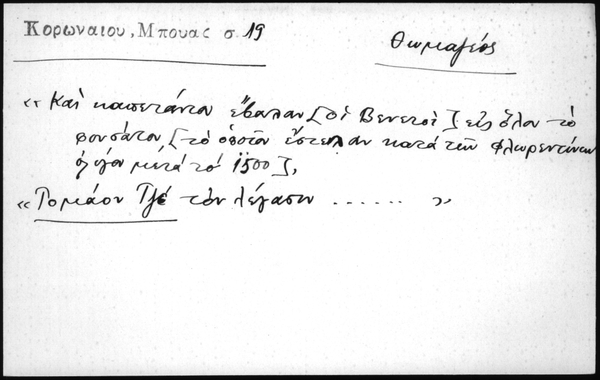 Κορωναιου, Μπουας σ 19
Θωμαγιός
«Καὶ καπετάνια ἔβαλαν [οἱ Βενετοὶ] εἰς ὅλα τὸ
φουσάτα, [τὸ ὁποῖα ἔστειλαν κατὰ τῶν Φλωρεντίνων
ὀλίγον μετὰ τὸ 1500],
«Τομάον Τζὲ τὸν λέγασιν ...... »